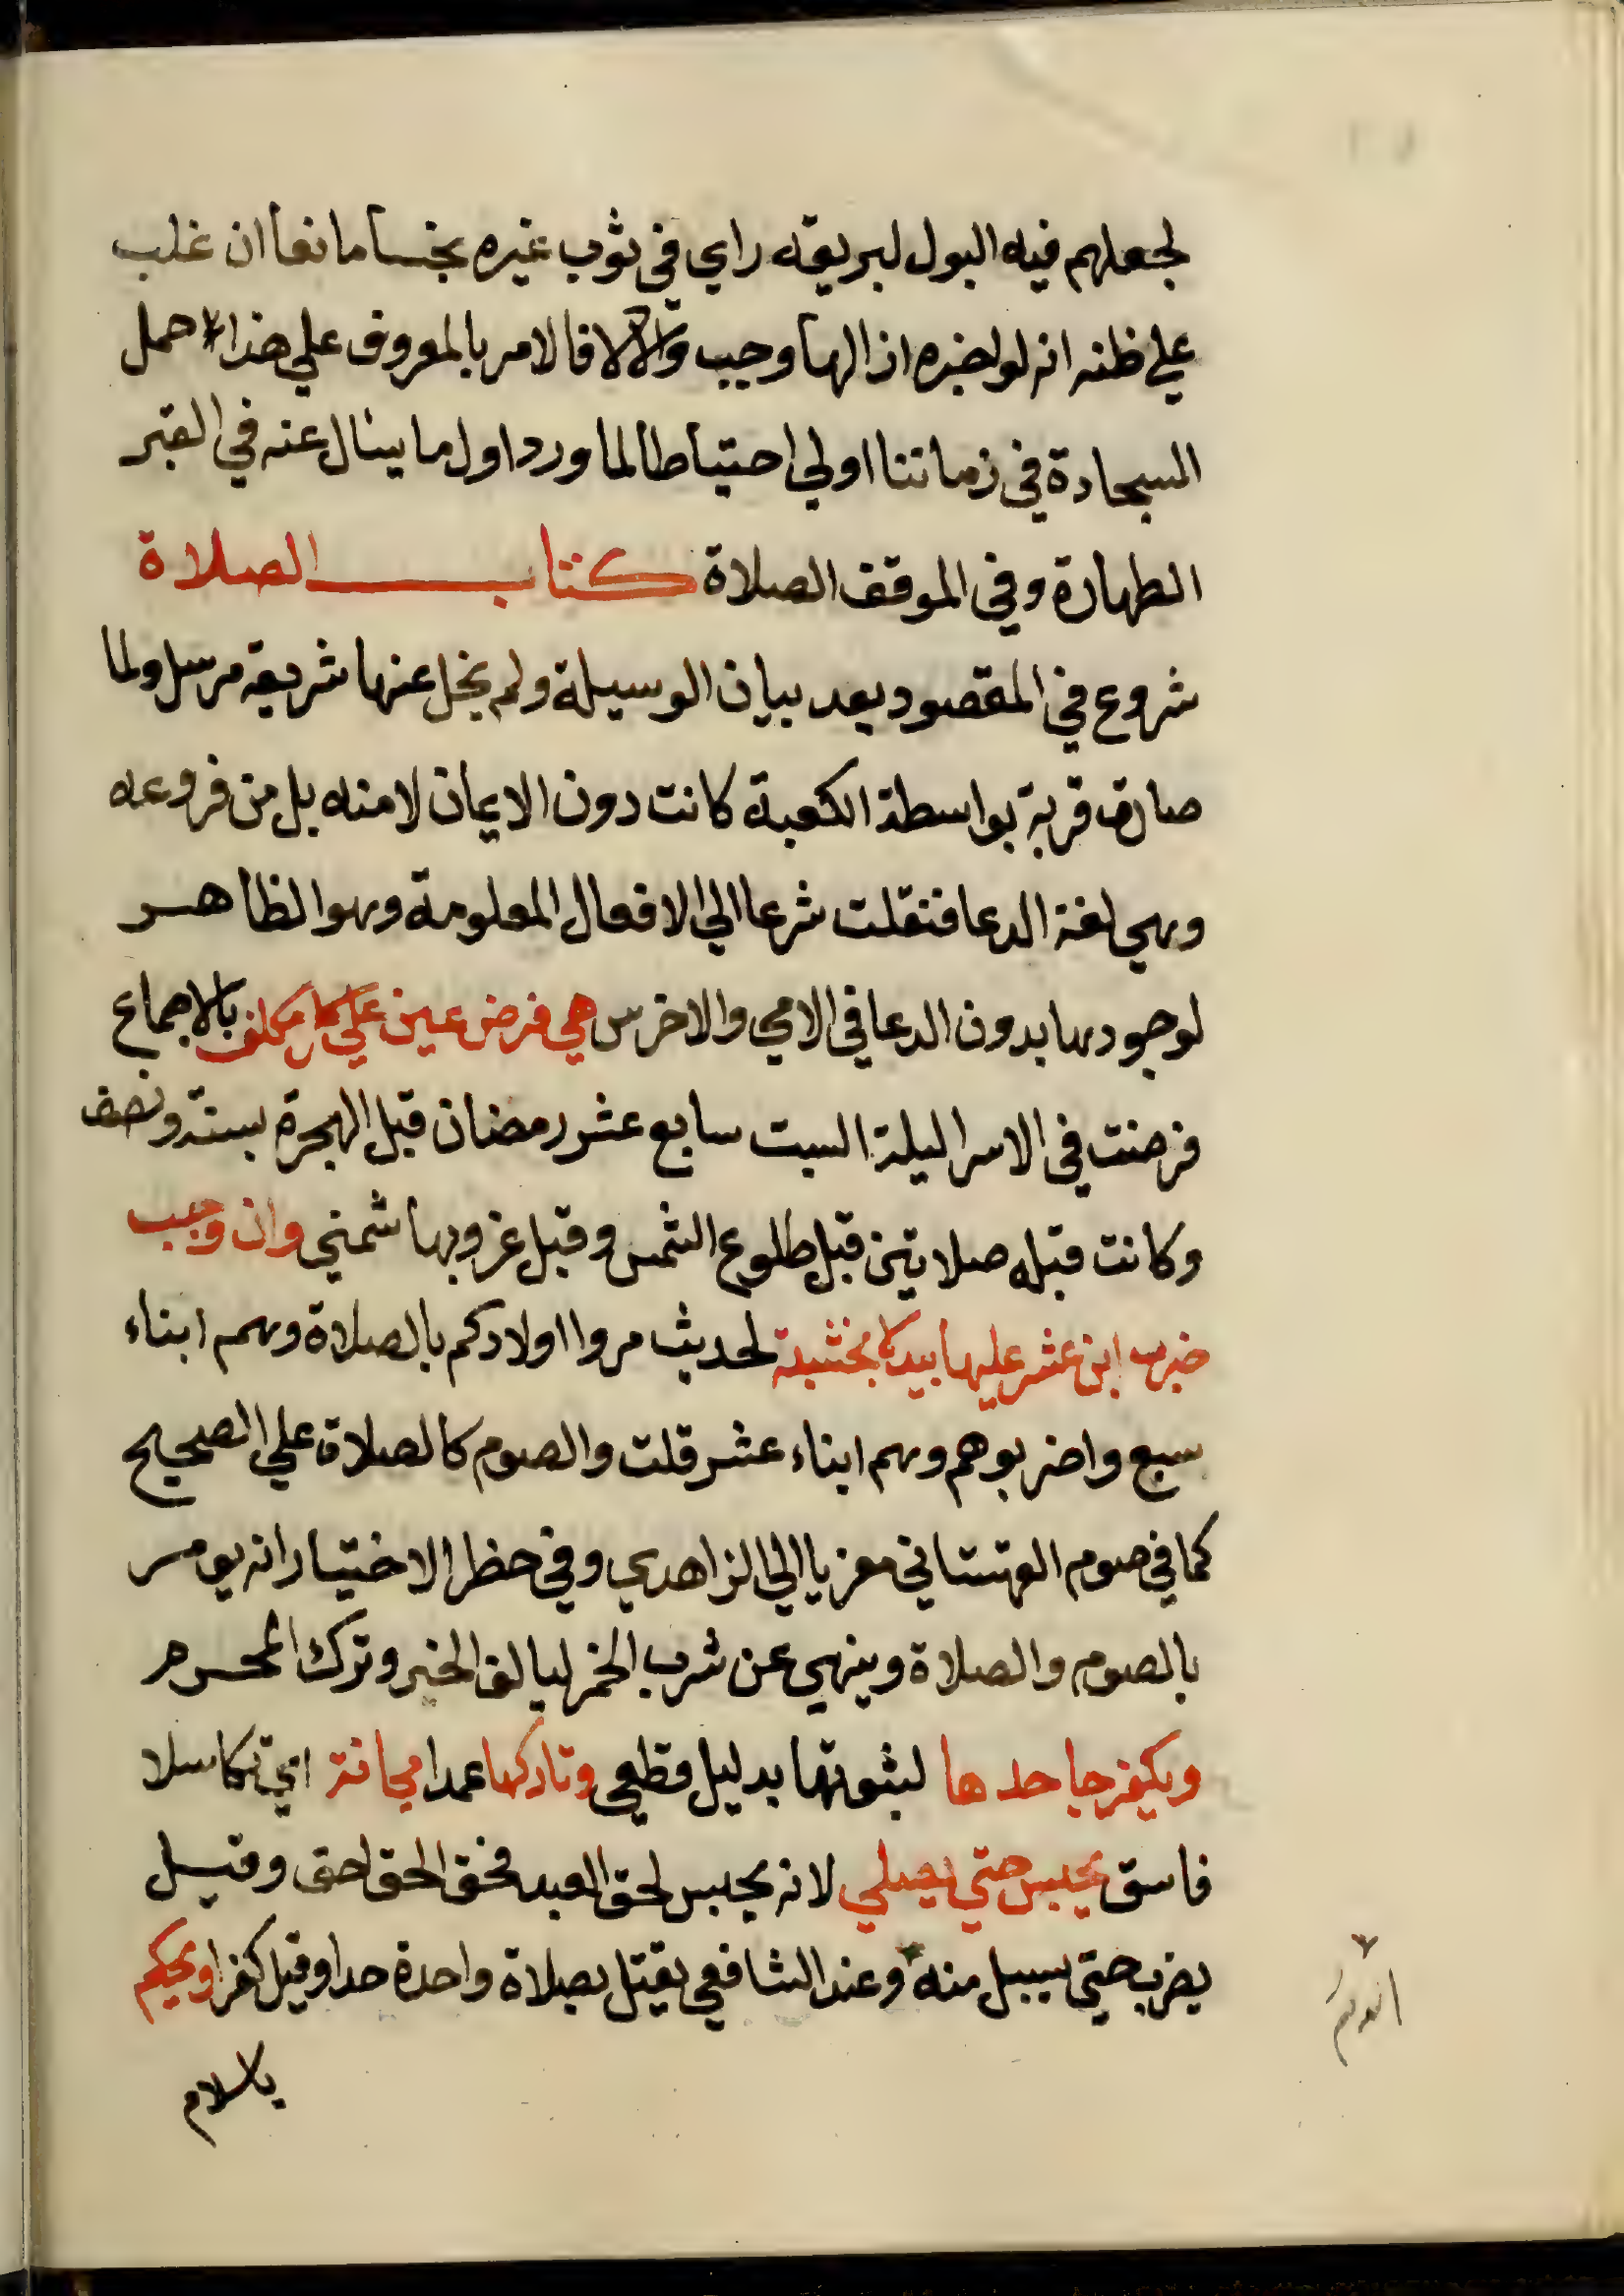 لجعلهم فيه البول لبريقه راي في ثوب غيره نجسا مانعا ان غلب
علي ظنه انه لو اخبره ازالها وجب والا لا فالامر بالمعروف علي هذا حمل
السجادة في زماننا اولي احتياطا لما ورد اول ما يسال عنه في القبر
الطهارة وفي الموقف الصلاة كتاب الصلاة
شروع في المقصود بعد بيان الوسيلة ولم يخل عنها شريعة مرسل ولما
صارت قربة بواسطة الكعبة كانت دون الايمان لا منه بل من فروعه
وهي لغة الدعا فنقلت شرعا الي الافعال المعلومة وهو الظاهر
لوجودها بدون الدعا في الامي والاخرس هي فرض عين علي كل مكلف بالاجماع
فرضت في الاسرا ليلة السبت سابع عشر رمضان قبل الهجرة بسنة ونصف
وكانت قبله صلاتين قبل طلوع الشمس وقبل غروبها شمني وان وجب
ضرب ابن عشر عليها بيد لا بخشبة لحديث مروا اولادكم بالصلاة وهم ابناء
سبع واضربوهم وهم ابناء عشر قلت والصوم كالصلاة علي الصحيح
كما في صوم القهستاني معزيا الي الزاهدي وفي حظر الاختيار انه يومر
بالصوم والصلاة وينهي عن شرب الخمر ليالف الخير وترك المحرم
ويكفر جاحدها لثبوتها بدليل قطعي وتاركها عمدا مجانة اي تكاسلا
فاسق يحبس حتي يصلي لانه يحبس لحق العبد فحق الحق احق وقيل
يضرب حتي يسيل منه وعند الشافعي يقتل بصلاة واحدة حدا وقيل كفرا ويحكم
بالسلام